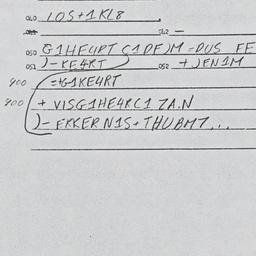 040 LOS+1KL8
042 —
050 G1HE4RT C1DFJM=DUS FE
051 )-KE4RT 052 +JEN1M
900 =G1KE4RT
900 + VISG1HE4RC1 7A.N
)-FRKERN1S+THUBM7...